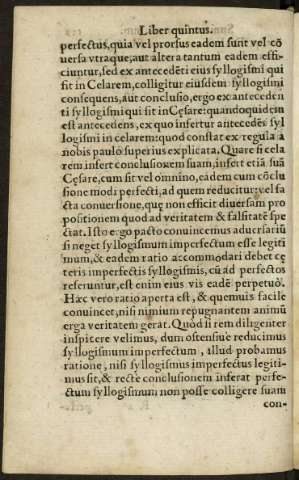 Liber quintus.
perfectus, quia vel prorsus eadem sunt vel cō
versa vtraque, aut altera tantum eadem effi-
ciuntur, sed ex antecedēti eius syllogismi qui
fit in Celarem, colligitur eiusdem syllogismi
consequens, aut conclusio, ergo ex anteceden
ti syllogismi qui fit in Cęsare: quandoquidem
est antecedens, ex quo infertur antecedēs syl
logismi in celarem: quod constat ex regula à
nobis pauló superius explicata. Quare si cela
rem infert conclusionem suam, infert etiā suā
Cęsare, cum sit vel omnino, eadem cum cōclu
sione modi perfecti, ad quem reducitur: vel fa
cta conuersione, quę non efficit diuersam pro
positionem quod ad veritatem & falsitatē spe
ctat. Isto ergo pacto conuincemus aduersariū
si neget syllogismum imperfectum esse legiti
mum, & eadem ratio accommodari debet cę
teris imperfectis syllogismis, cū ad perfectos
referuntur, est enim eius vis eadē perpetuò.
Hæc vero ratio aperta est, & quemuis facile
conuincet, nisi nimium repugnantem animū
erga veritatem gerat. Quòd si rem diligenter
inspicere velimus, dum ostensiuè reducimus
syllogismum imperfectum, illud probamus
ratione, nisi syllogismus imperfectus legiti-
mus sit, & rectè conclusionem inferat perfe-
ctum syllogismum non posse colligere suam
con-